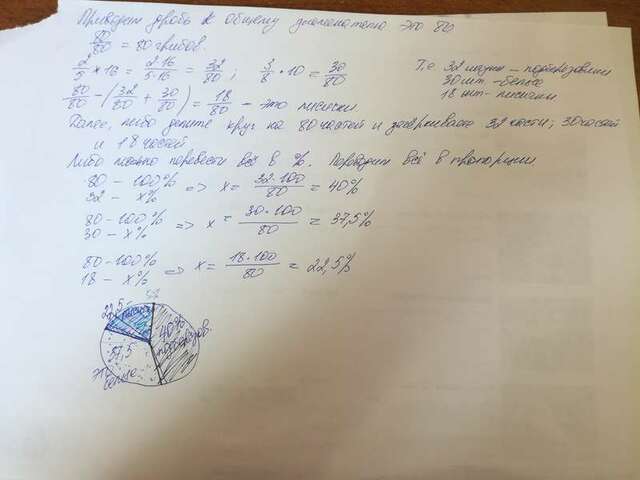 Приводим дробь к общему знаменателю это 80
80/80 = 80 грибов.
2/5 × 16 = 2·16/5·16 = 32/80 ; 3/8 · 10 = 30/80
Т.е 32 штуки – подберезовики
30 шт. – белые
18 шт – лисички
80/80 – (32/80 + 30/80) = 18/80 – это лисички
Далее, либо делите круг на 80 частей и зачеркиваете 32 части; 30 частей
и 18 частей
Либо можно перевести всё в %. Переводим всё в пропорции
80 – 100% => x = 32·100/80 = 40%
32 – x%
80 – 100% => x = 30·100/80 = 37,5%
30 – x%
80 – 100% => x = 18·100/80 = 22,5%
18 – x%
22,5
40%
подберезов.
37,5
белые